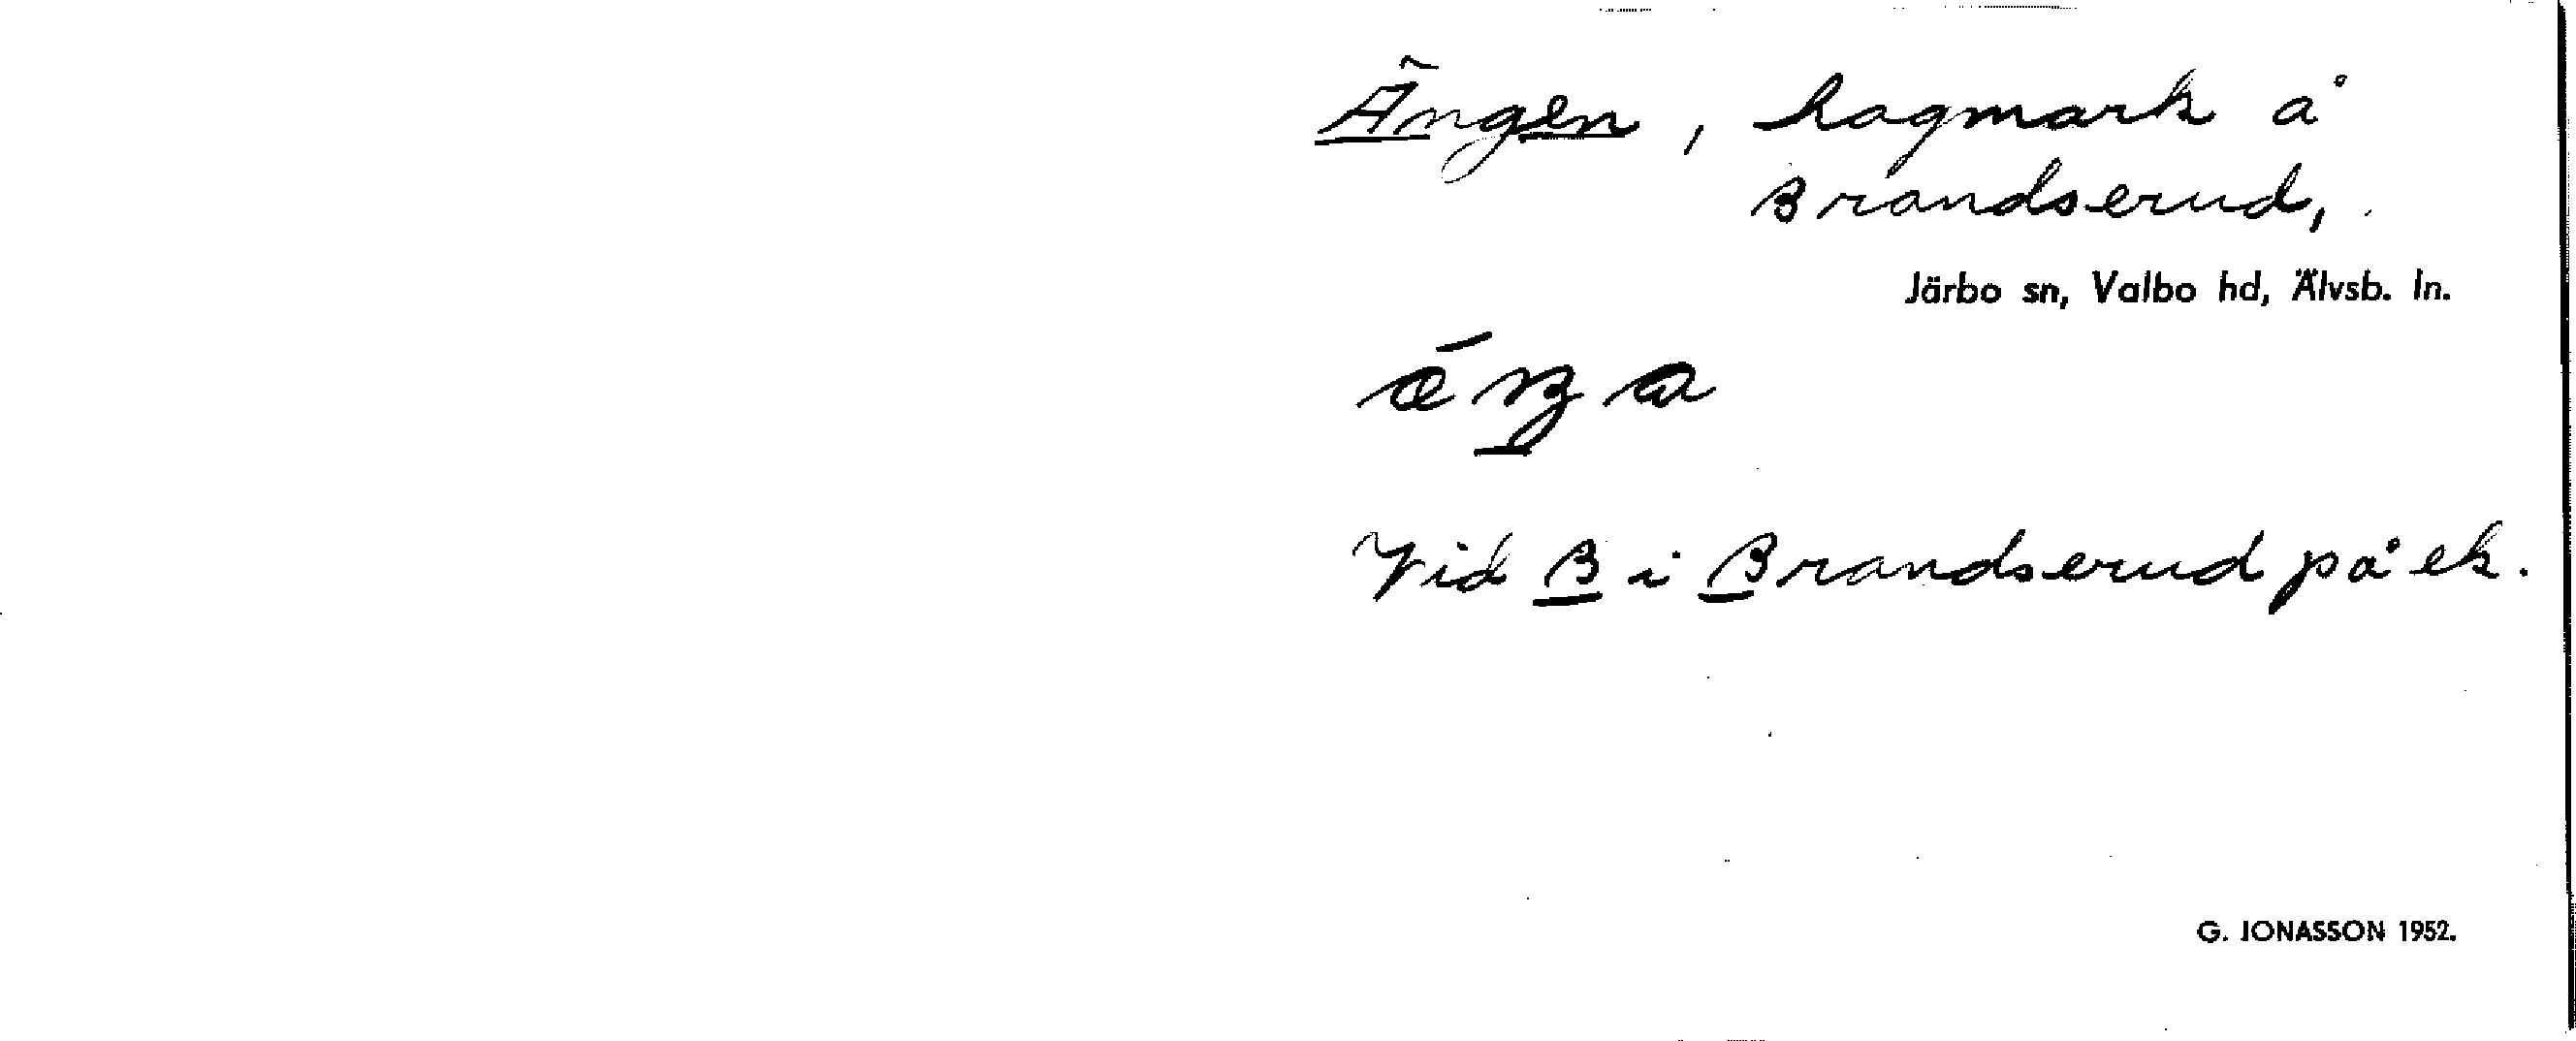 Ängen, hagmark å
Brandserud,
Järbo sn, Valbo hd, Älvsb. ln.
Vid B i Brandserud på ek.
G. JONASSON 1952.